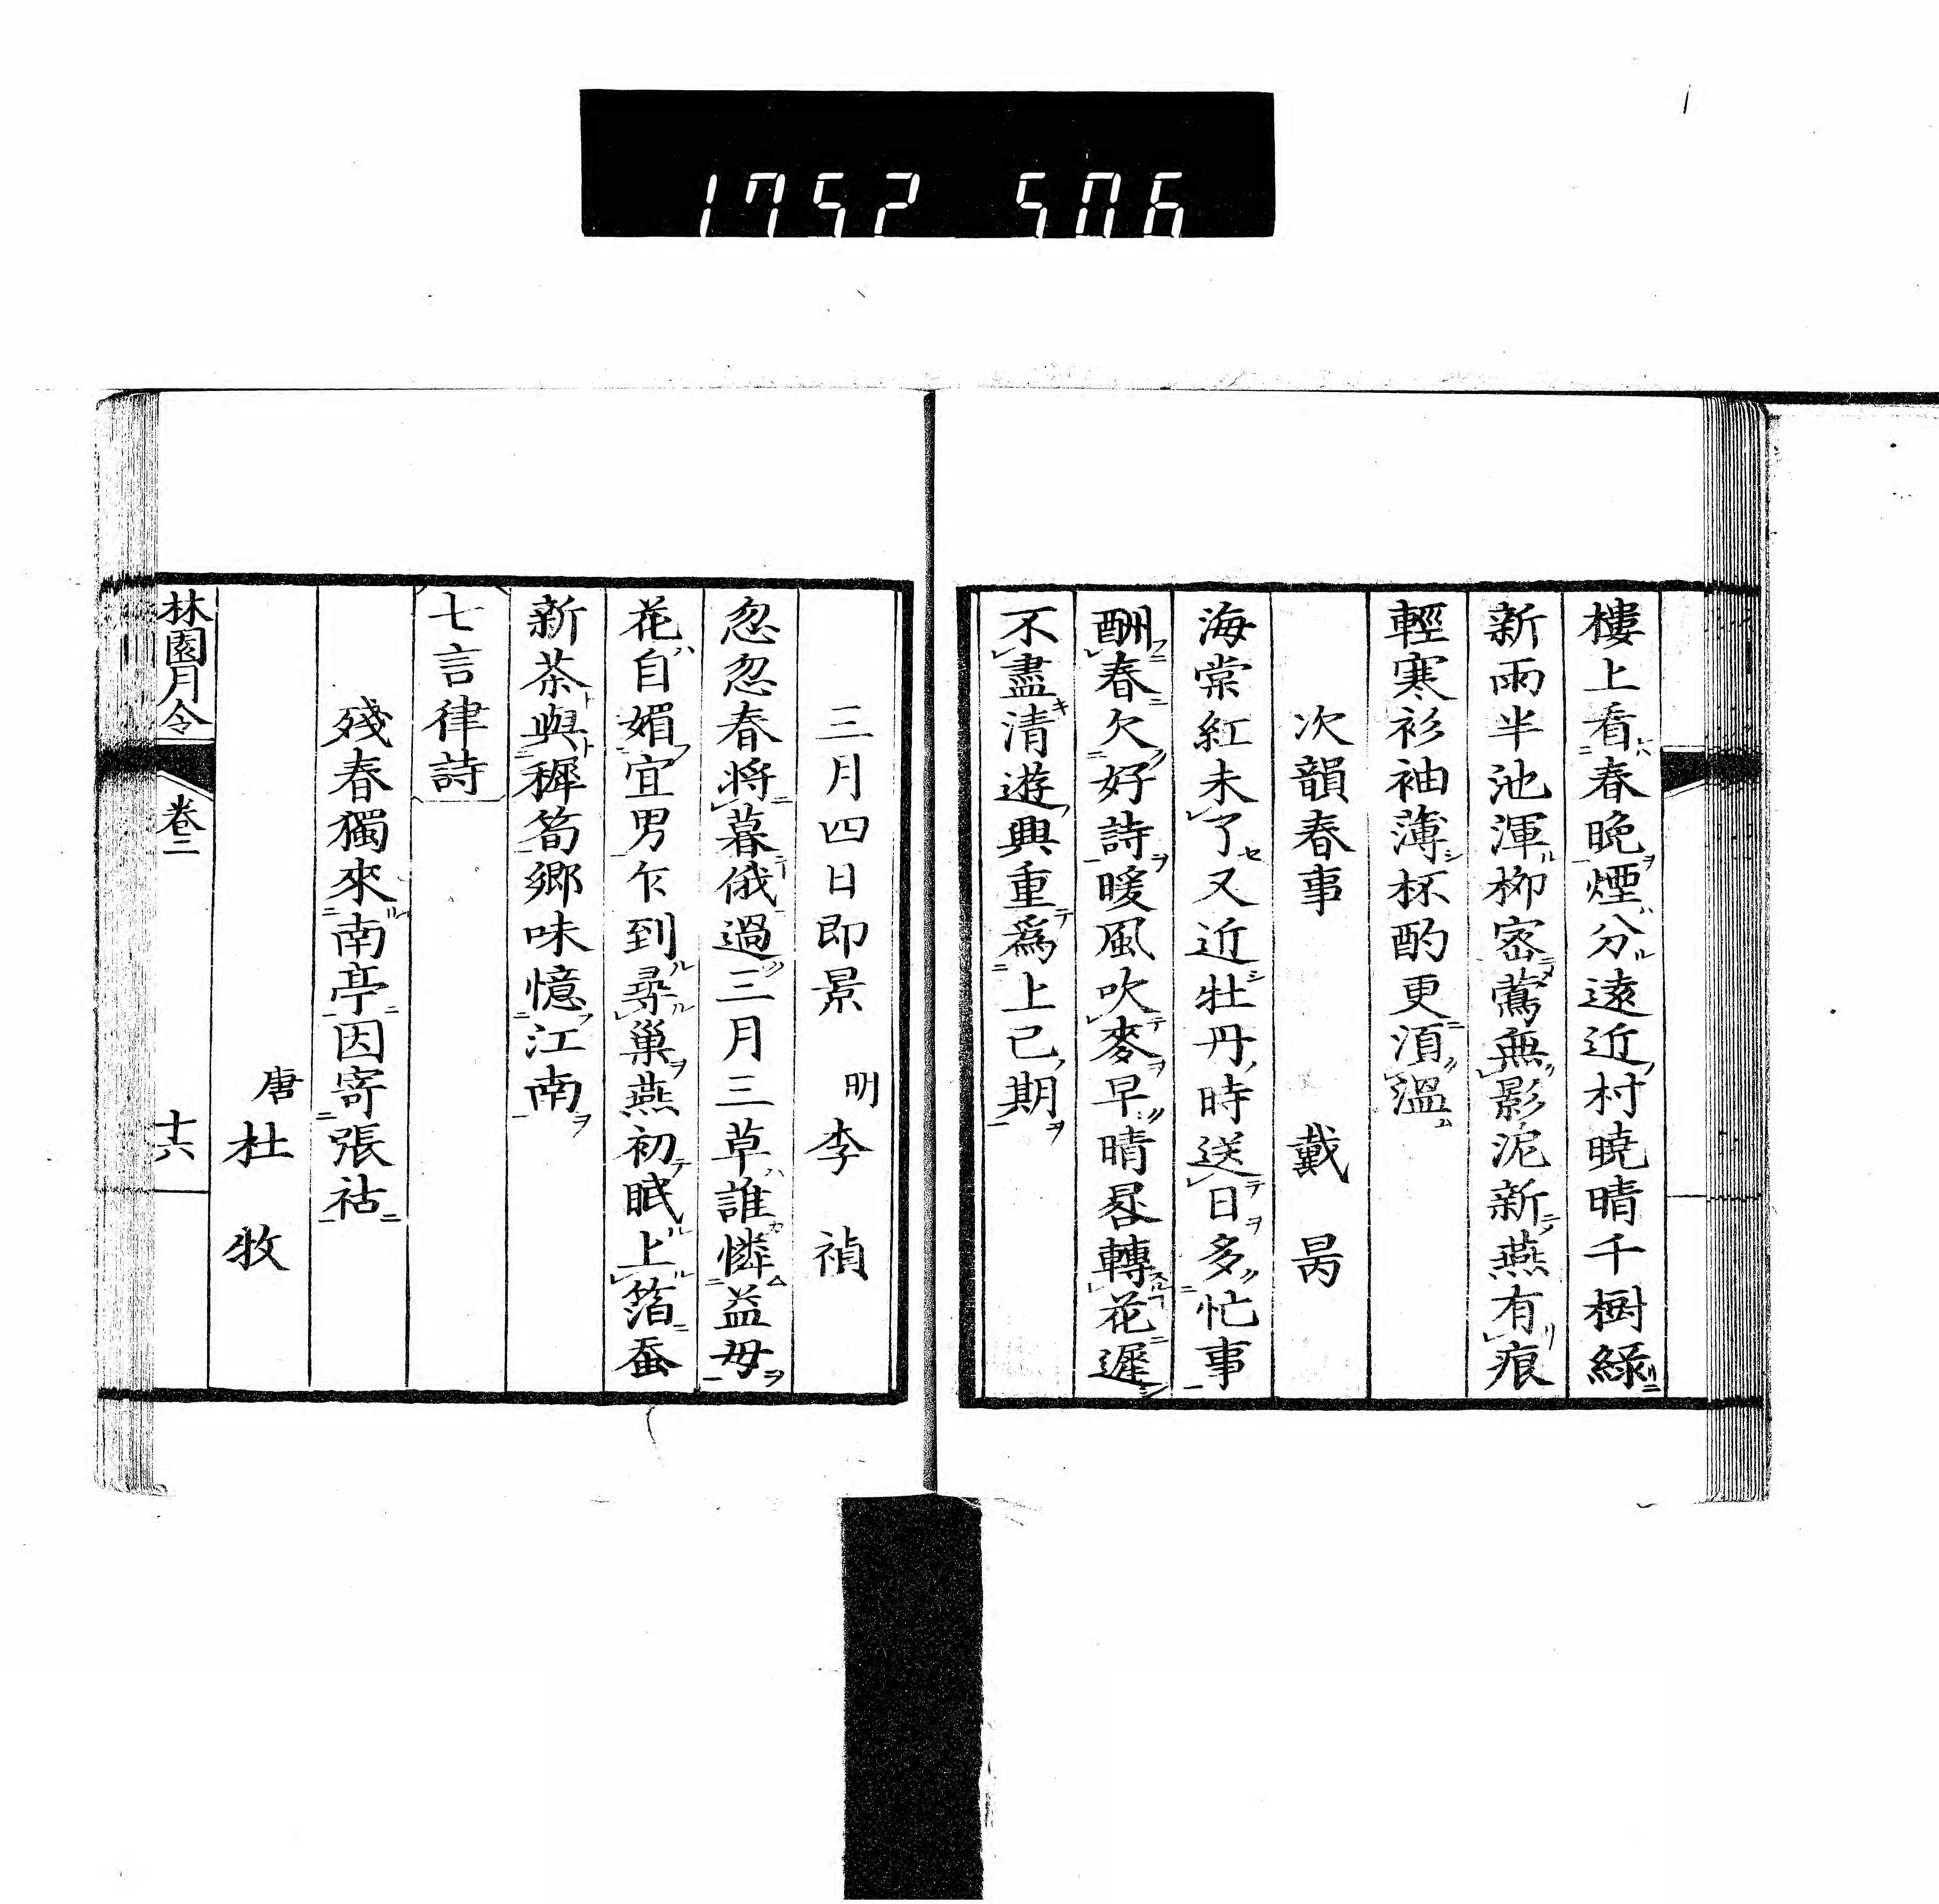 1752 506
樓上看春晩煙分遠近村曉晴千樹綠
新雨半池渾柳密鶯無影泥新燕有痕
輕寒衫袖薄杯酌更須溫
次韻春事 戴昺
海棠紅未了又近牡丹時送日多忙事
酬春欠好詩暖風吹麥早晴晷轉花遲
不盡清遊興重爲上已期
三月四日即景 明 李禎
忽忽春將暮俄過三月三草誰憐益母
花自媚宜男乍到尋巢燕初眠上箔蚕
新茶與穉筍鄉味憶江南
七言律詩
殘春獨來南亭因寄張祜
唐 杜牧
林園月令 卷二 十六